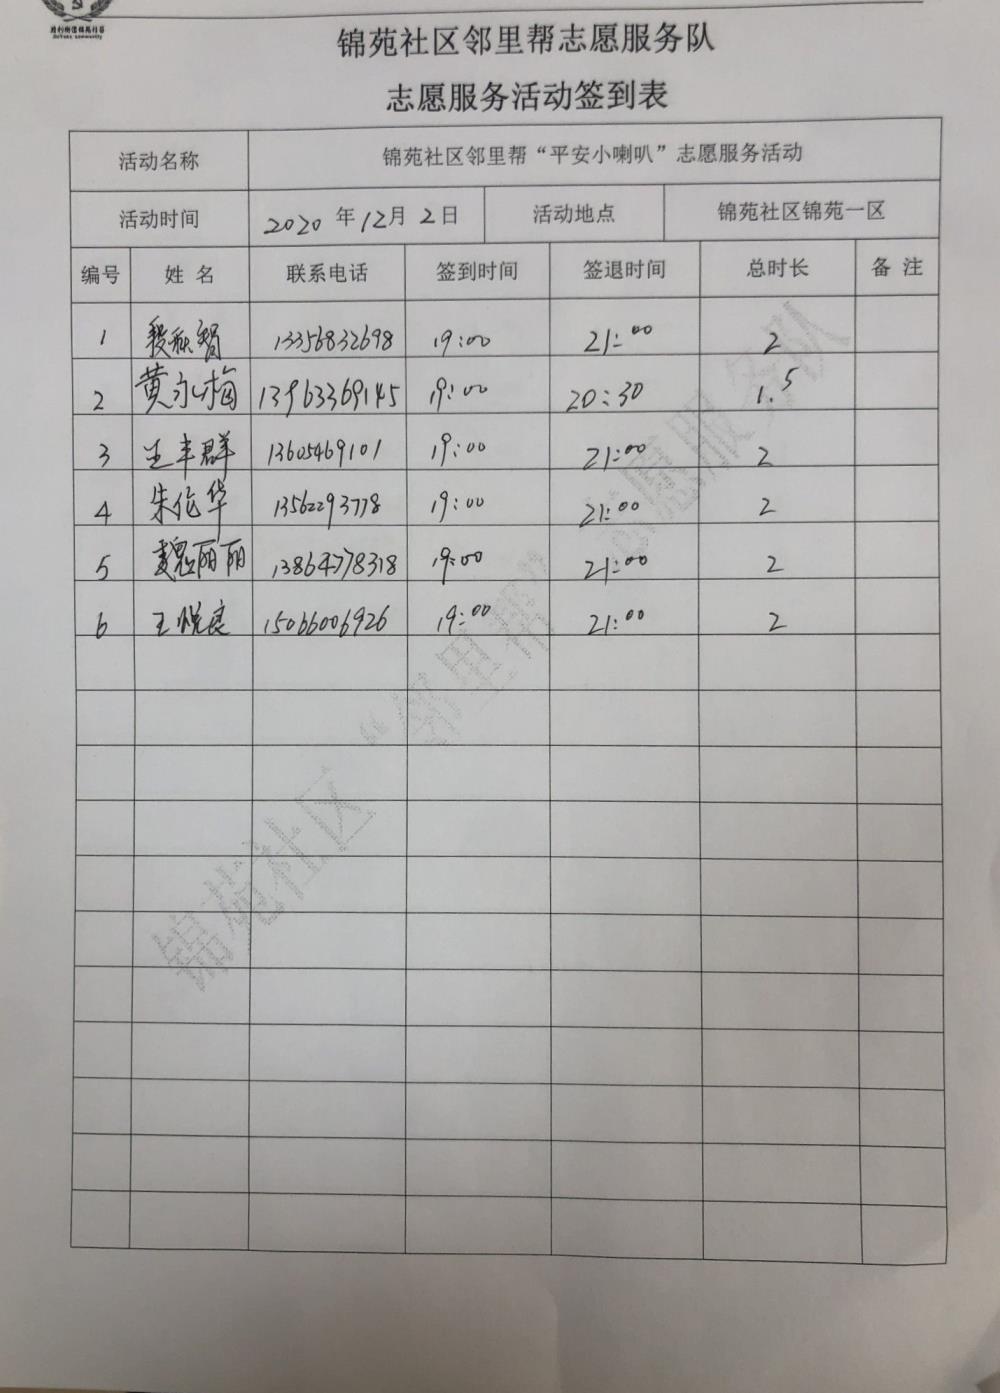 锦苑社区邻里帮志愿服务队
志愿服务活动签到表
活动名称 锦苑社区邻里帮“平安小喇叭”志愿服务活动
活动时间 2020 年 12 月 2 日 活动地点 锦苑社区锦苑一区
编号 姓 名 联系电话 签到时间 签退时间 总时长 备 注
1 段秋智 13356832698 19:00 21:00 2
2 黄永梅 13963369145 19:00 20:30 1.5
3 生丰群 13605469101 19:00 21:00 2
4 朱伦华 13562293778 19:00 21:00 2
5 魏丽丽 13864778318 19:00 21:00 2
6 王悦良 15066006926 19:00 21:00 2
锦苑社区“邻里帮”志愿服务队